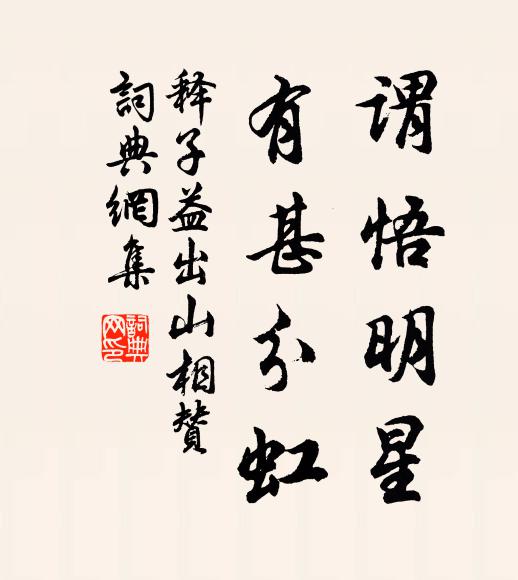 謂悟明星
有甚分虹
释子益出山相賛
詞典網集
詞典
网印